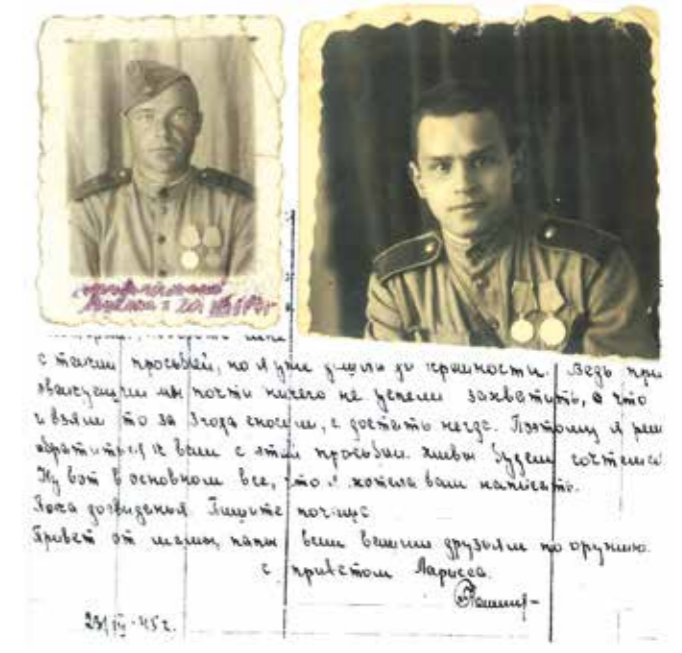 с такой просьбой, но я уже дошла до крайности. Ведь при
эвакуации мы почти ничего не успели захватить, а что
и взяли то за 3 года сносили, а достать негде. Поэтому я реш
обратиться к вам с этой просьбой. живы будем сочтемся
Ну вот в основном все, что я хотела вам написать.
Пока досвиданья. Пишите почаще
Привет от мамы, папы всем вашим друзьям по оружию.
с приветом Лариса.
23/IV-45 г.